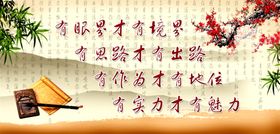 有眼界才有境界
有思路才有出路
有作为才有地位
有实力才有魅力